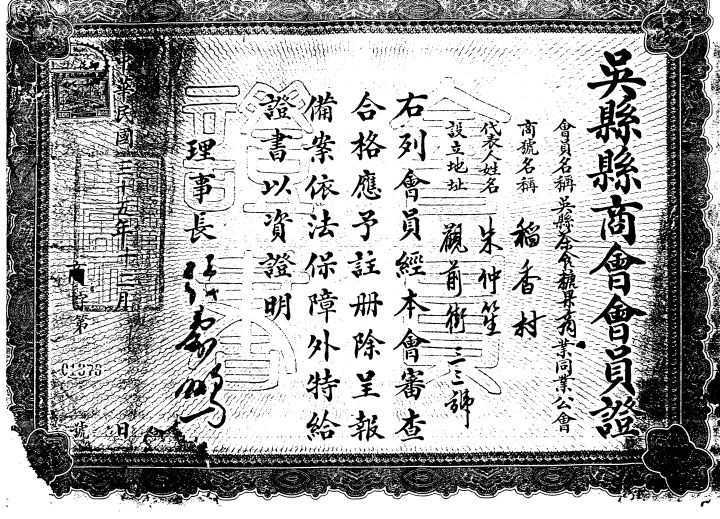 吳縣縣商會會員證
會員名稱 吳縣茶食糖果商業同業公會
商號名稱 稻香村
代表人姓名 朱仲笙
設立地址 觀前街 三三號
右列會員經本會審查
合格應予註冊除呈報
備案依法保障外特給
證書以資證明
理事長
中華民國三十五年十二月 日
商字第 01376 號
會員證書